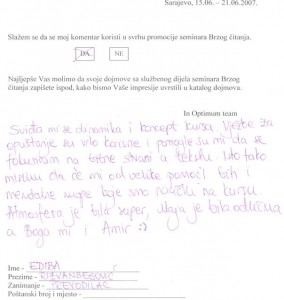 Sarajevo, 15.06. – 21.06.2007.
Slažem se da se moj komentar koristi u svrhu promocije seminara Brzog čitanja.
DA NE
Najljepše Vas molimo da svoje dojmove sa službenog dijela seminara Brzog
čitanja zapišete ispod, kako bismo Vaše impresije uvrstili u katalog dojmova.
In Optimum team
Sviđa mi se dinamika i koncept kursa. Vježbe za
opuštanje su vrlo korisne i pomogle su mi da se
fokusiram na bitne stvari u tekstu. Isto tako
mislim da će mi od velike pomoći biti i
mentalne mape koje smo naučili na kursu.
Atmosfera je bila super, Maja je bila odlična
a Boga mi i Amir :)
Ime - EDIBA
Prezime - RIZVANBEGOVIĆ
Zanimanje - PREVODILAC
Poštanski broj i mjesto -